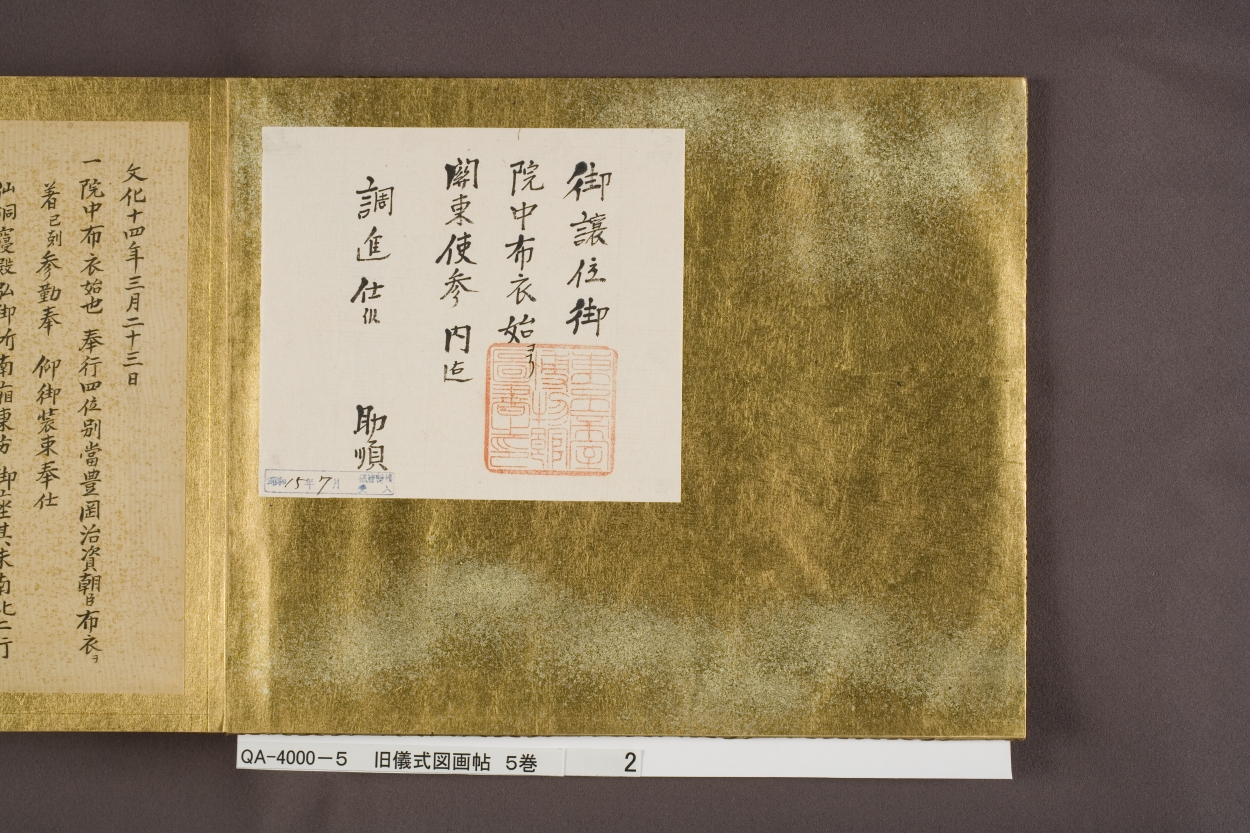 御讓位御
院中布衣始ヨリ
關東使參 内迄
調進仕候
助順
昭和15年7月
文化十四年三月二十三日
一院中布衣始也 奉行四位别當豊岡治資朝臣布衣ヲ
著己刻参勤奉 仰御装束奉仕
仙洞寝殿弘御所南廂東方 御座其末南北二行
QA-4000-5 旧儀式図画帖 5巻 2